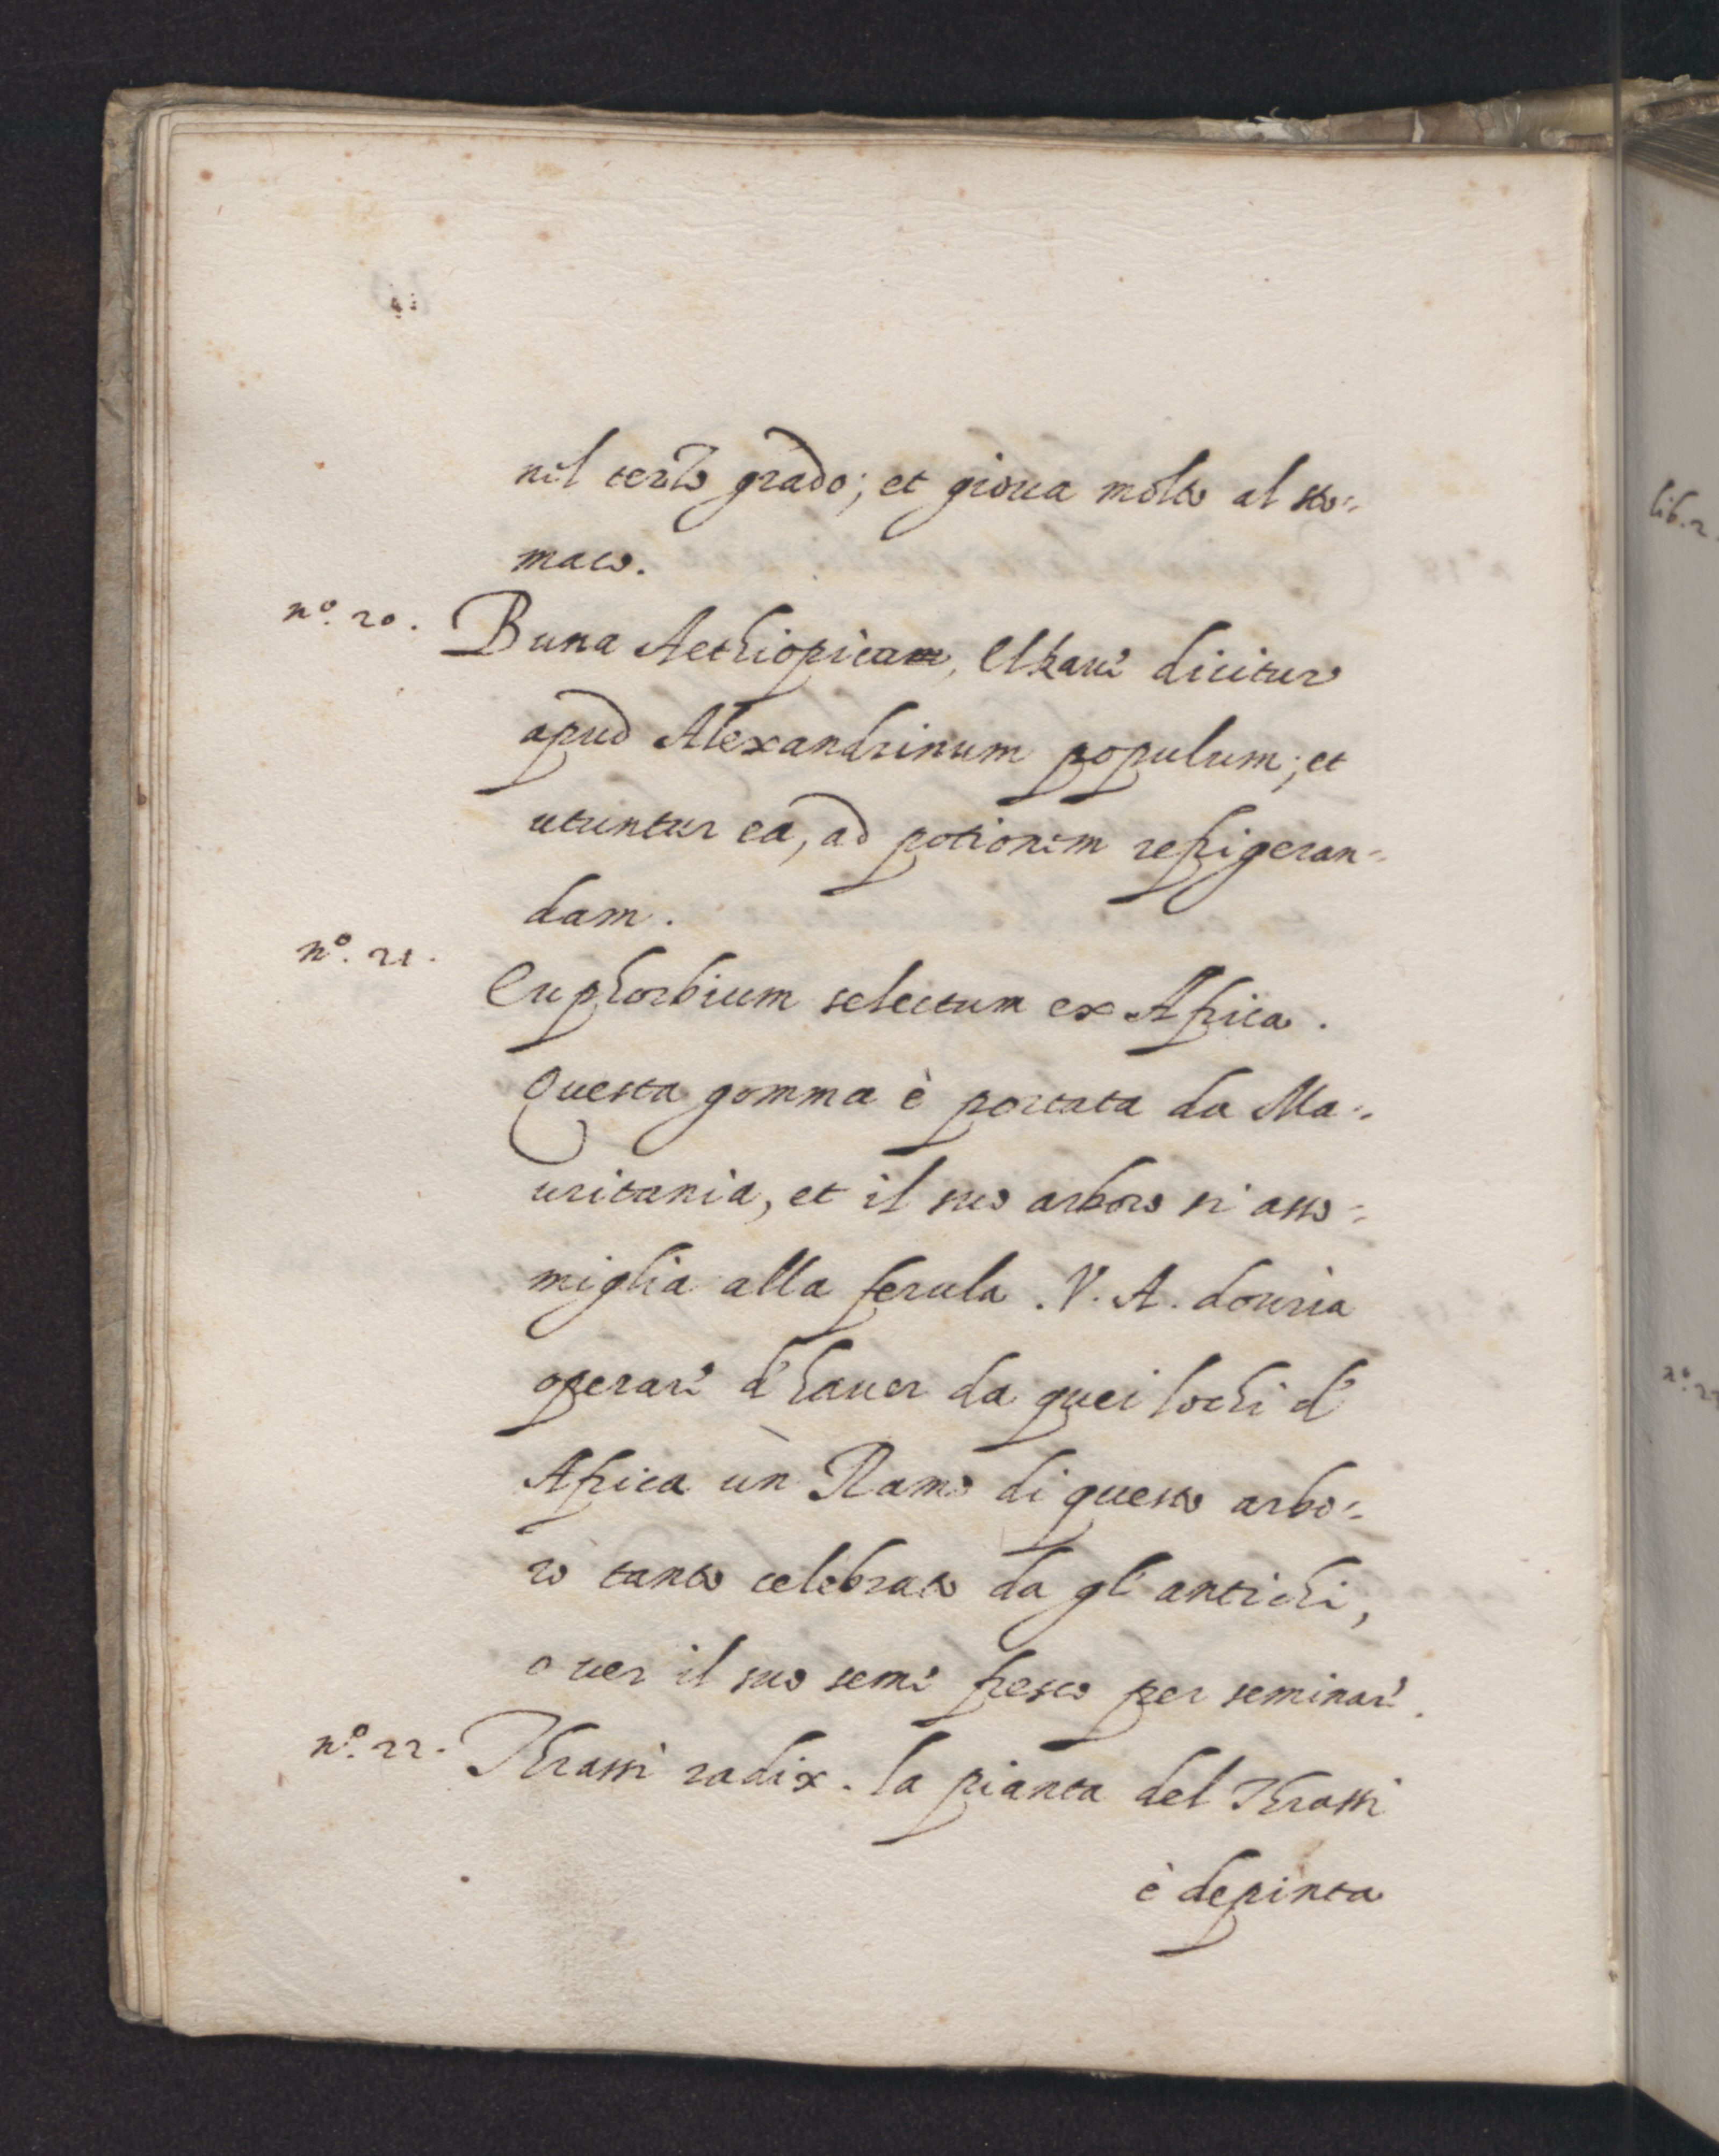 nel terzo grado; et gioua molto al sto=
maco.
nº. 20. Buna Aethiopica, Elkaue dicitur
apud Alexandrinum populum; et
utuntur ea, ad potionem refrigeran=
dam.
nº. 21.
Euphorbium selectum ex Africa.
Questa gomma è portata da Ma=
uritania, et il suo arboro si asso=
miglia alla ferula. V. A. douria
operare d'hauer da quei lochi d'
Africa un Ramo di questo arbo=
ro tanto celebrato da gl' antichi,
o uer il suo seme fresco per seminare.
nº. 22. Thrassi radix. la pianta del Thrassi
è depinta
lib. 2